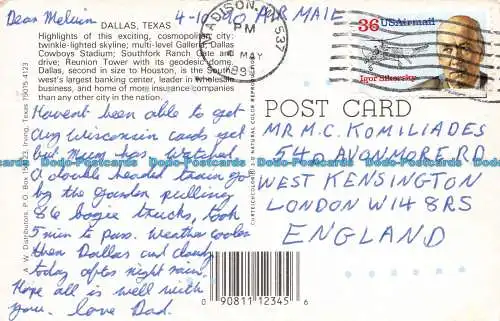 Dear Melvin 4-10-90 AIR MAIL
DALLAS, TEXAS
Highlights of this exciting, cosmopolitan city:
twinkle-lighted skyline; multi-level Galleria; Dallas
Cowboys Stadium; Southfork Ranch Gate and
drive; Reunion Tower with its geodesic dome.
Dallas, second in size to Houston, is the South-
west's largest banking center, leader in wholesale
business, and home of more insurance companies
than any other city in the nation.
Havent been able to get
any Wisconsin cards yet
but Mum has. Watched
a double headed train go
by the Garden pulling
86 bogie trucks, took
5 min to pass. Weather cooler
then Dallas and cloudy
today after night rain.
Hope all is well with
you. love Dad.
A. W. Distributors, P.O. Box Irving, Texas 75015-4123
MADISON, WI 537
PM
MAY
36 USAirmail
Igor Sikorsky
POST CARD
MR M.C. KOMILIADES
540 AVONMORE RD
WEST KENSINGTON
LONDON W14 8RS
ENGLAND
0 90811 12345 6
Postcards-Dabo